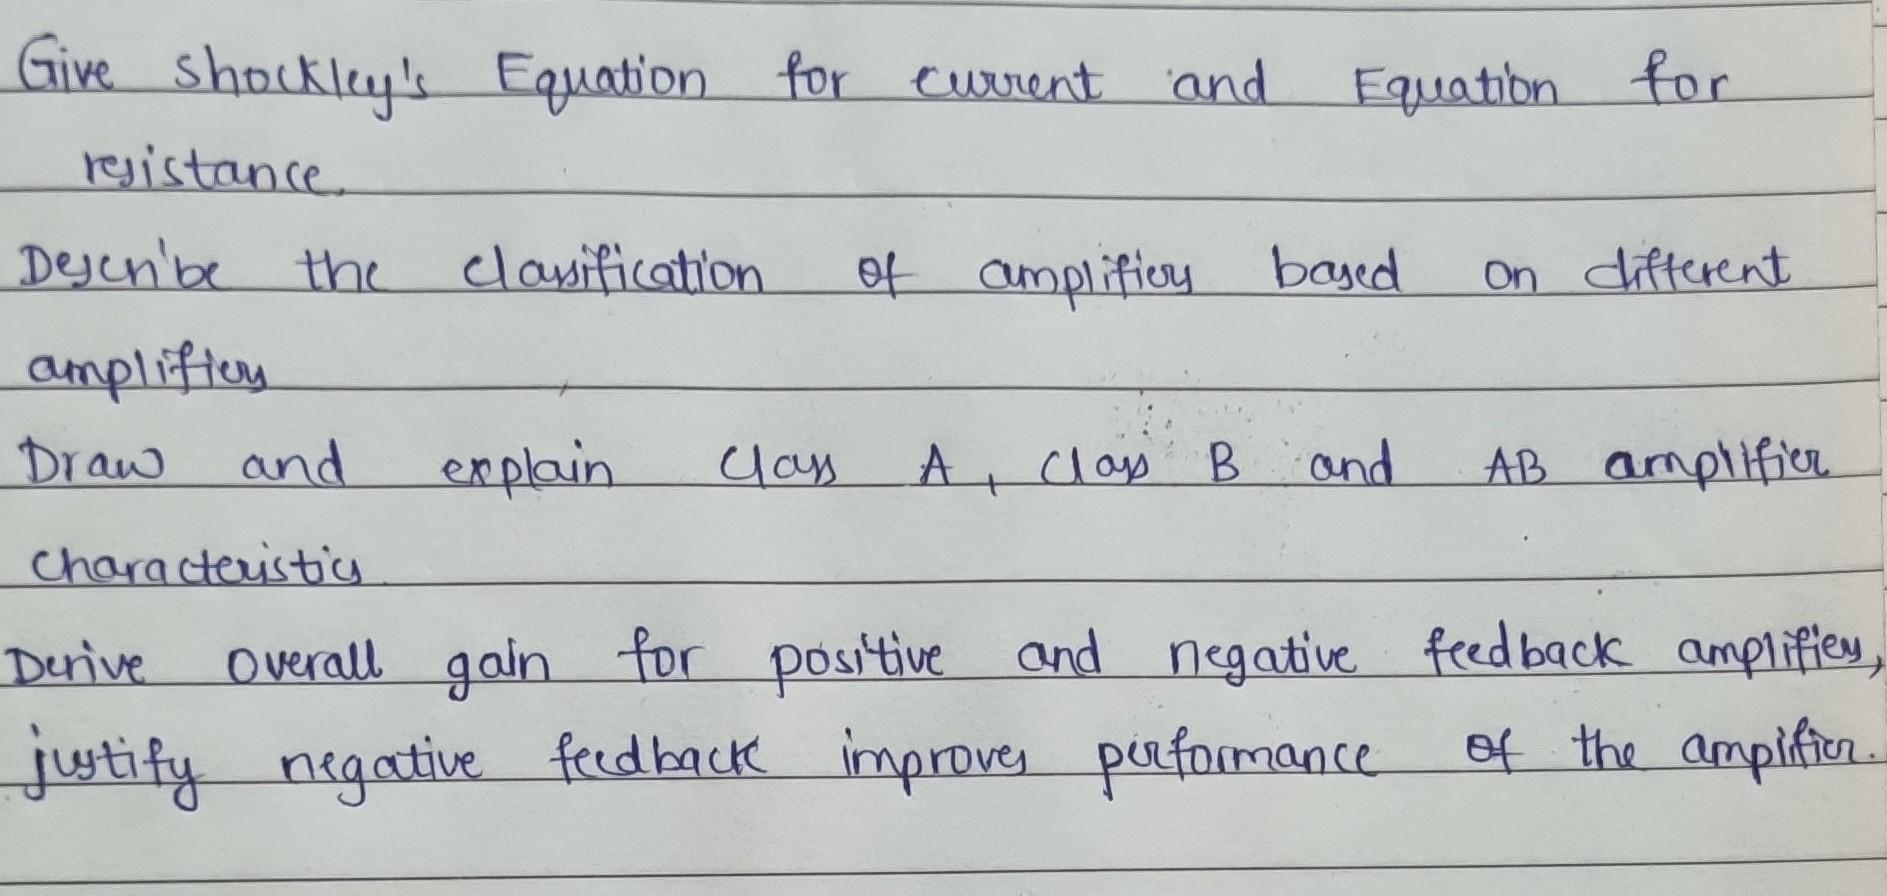 Give Shockley's Equation for current and Equation for
resistance.
Describe the classification of amplifiers based on different
amplifiers
Draw and explain Class A, Class B and AB amplifier
characteristics
Derive overall gain for positive and negative feedback amplifiers,
justify negative feedback improves performance of the ampifier.